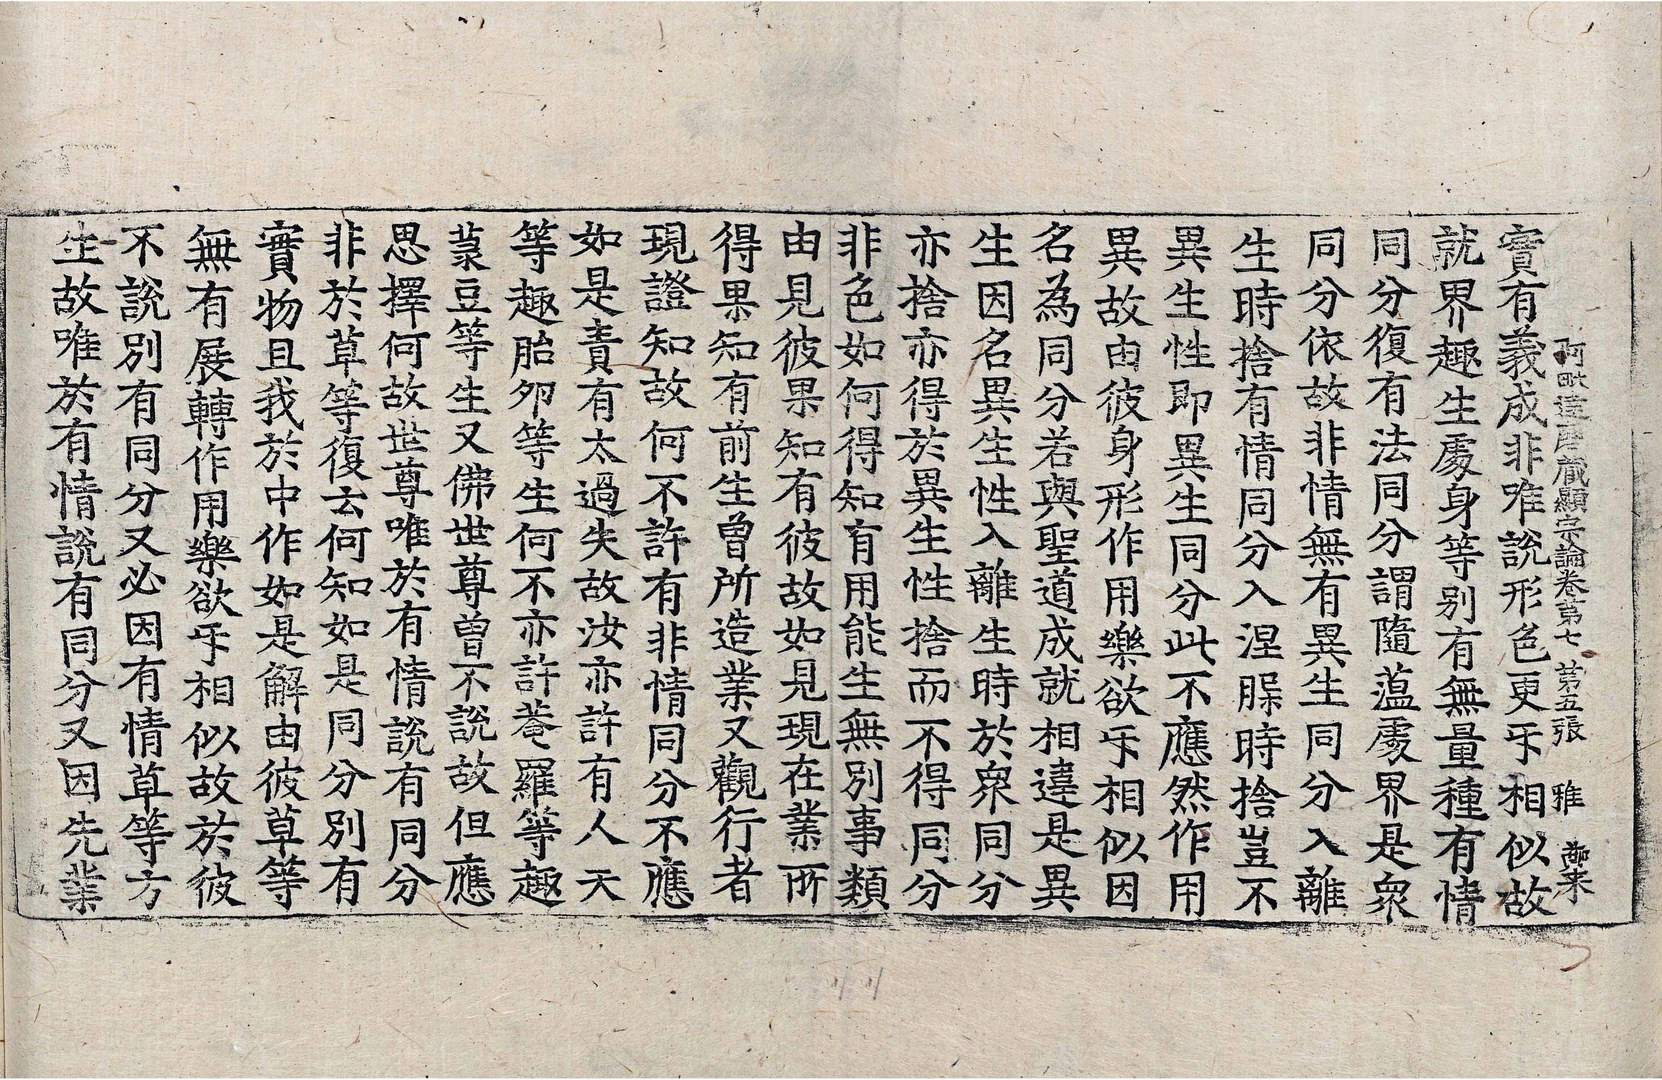 阿毗達磨藏顯宗論卷第七 第五張 雅
實有義成非唯說形色更乎相似故
就界趣生處身等別有無量種有情
同分復有法同分謂隨蘊處界是衆
同分依故非情無有異生同分入離
生時捨有情同分入涅槃時捨豈不
異生性即異生同分此不應然作用
異故由彼身形作用樂欲乎相似因
名為同分若與聖道成就相違是異
生因名異生性入離生時於衆同分
亦捨亦得於異生性捨而不得同分
非色如何得知有用能生無別事類
由見彼果知有彼故如見現在業所
得果知有前生曾所造業又觀行者
現證知故何不許有非情同分不應
如是責有太過失故汝亦許有人天
等趣胎卵等生何不亦許菴羅等趣
菉豆等生又佛世尊曾不說故但應
思擇何故世尊唯於有情說有同分
非於草等復云何知如是同分別有
實物且我於中作如是解由彼草等
無有展轉作用樂欲乎相似故於彼
不說別有同分又必因有情草等方
生故唯於有情說有同分又因先業